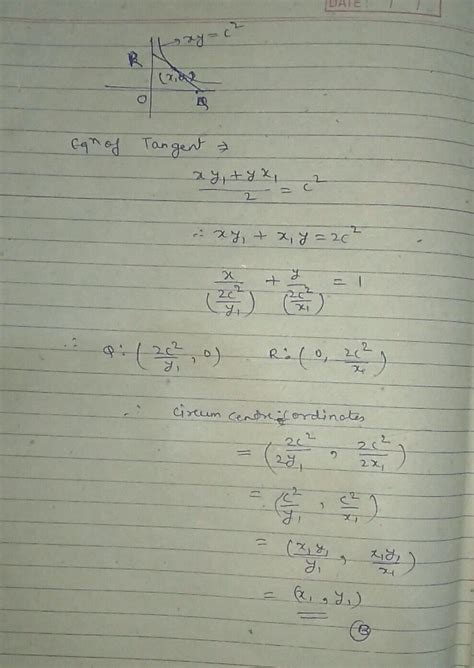 DATE: / /
xy = c²
R
(x₁, y₁)
O
Q
Eqⁿ of Tangent ⇒
(xy₁ + yx₁)/2 = c²
∴ xy₁ + x₁y = 2c²
x/(2c²/y₁) + y/(2c²/x₁) = 1
∴ Q: (2c²/y₁, 0) R: (0, 2c²/x₁)
∴ Circum centre coordinates
= (2c²/2y₁, 2c²/2x₁)
= (c²/y₁, c²/x₁)
= (x₁y₁/y₁, x₁y₁/x₁)
= (x₁, y₁)
B